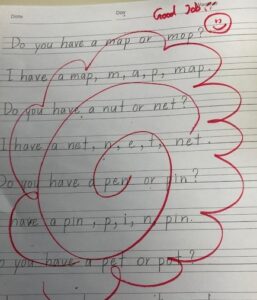 Date Day Good Job!!
Do you have a map or mop?
I have a map, m, a, p, map.
Do you have a nut or net?
I have a net, n, e, t, net.
Do you have a pen or pin?
have a pin, p, i, n, pin.
you have a pet or pot?